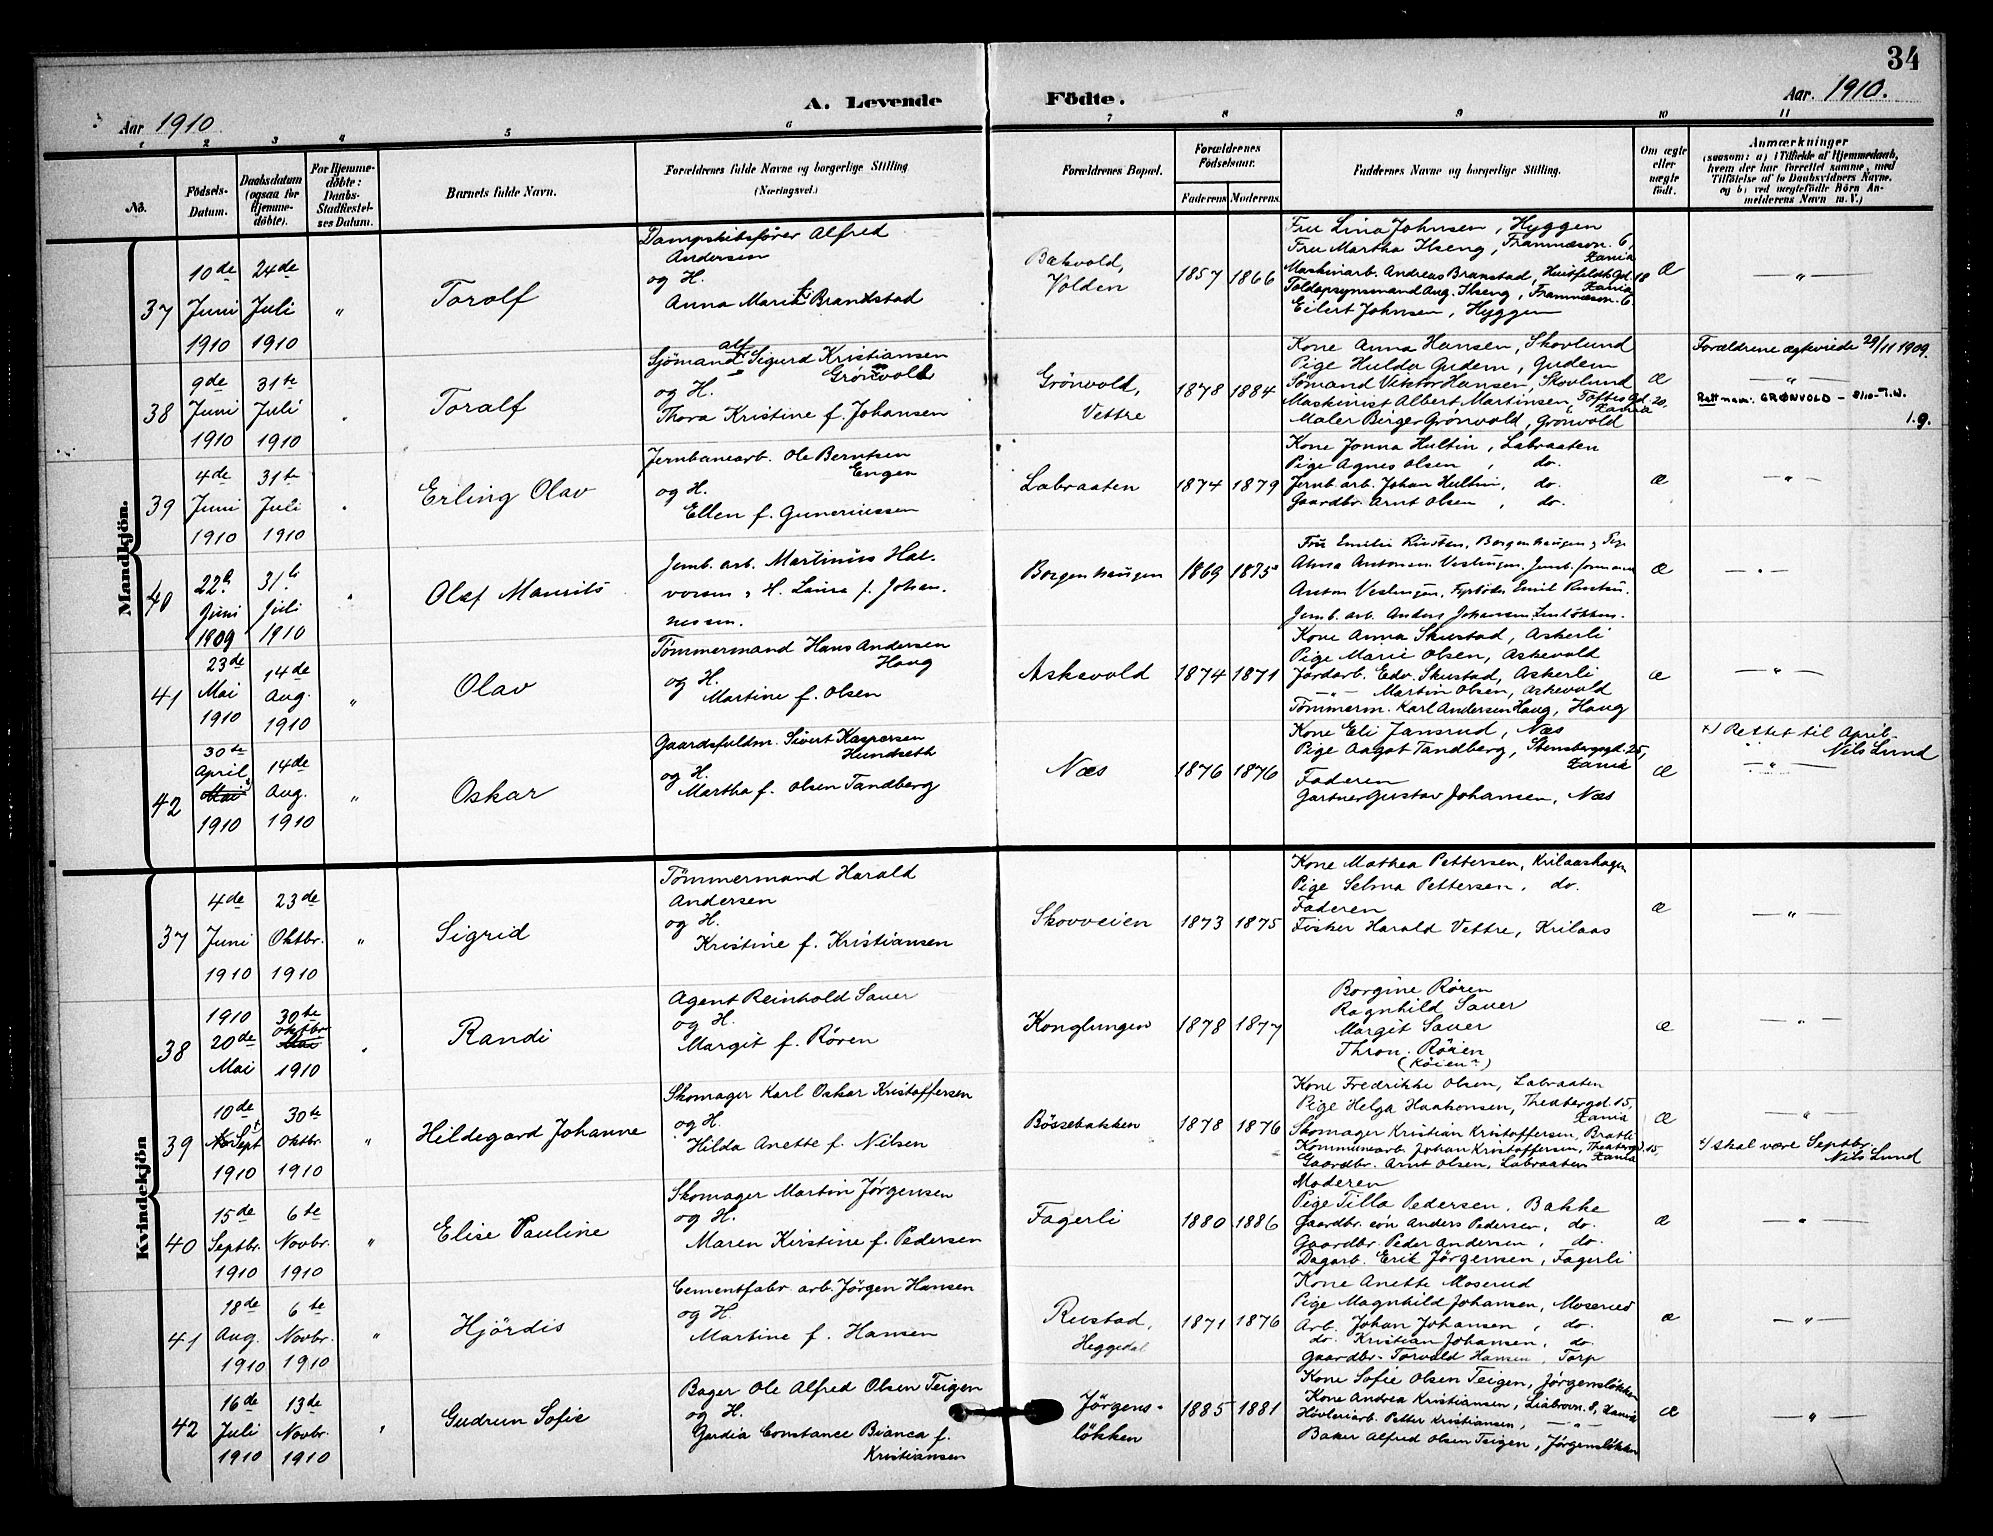 34
A. Levende Födte.
Aar 1910
Aar. 1910.
1 2 3 4 5 6 7 8 9 10 11
No.
Födsels-Datum.
Daabsdatum (ogsaa for Hjemmedöbte).
For Hjemmedöbte: Daabs-Stadfestelses Datum.
Barnets fulde Navn.
Forældrenes fulde Navne og borgerlige Stilling (Næringsvei.)
Forældrenes Bopæl.
Forældrenes Födselsaar.
Faderens Moderens
Faddernes Navne og borgerlige Stilling.
Om ægte eller uægte födt.
Anmærkninger
(saasom: a) i Tilfælde af Hjemmedaab, hvem der har forrettet samme, med Tilföielse af to Daabsvidners Navne, og b) ved uægtefödte Börn Anmelderens Navn m. V.)
Mandkjön.
37
10de Juni 1910
24de Juli 1910
"
Torolf
Dampskibsförer Alfred
Andersen
og H.
Anna Marie Brandstad
Bakvold,
Volden
1857 1866
Fru Lina Johnsen, Hyggen
Fru Martha Ilseng, Framnæsvn. 6, Xania
Maskinarb. Andreas Branstad, Huitfeldts Gd. 18 Xania
Toldopsynsmand Aug. Ilseng, Framnæsvn. 6
Eilert Johnsen, Hyggen
Æ
— " —
38
9de Juni 1910
31te Juli 1910
"
Toralf
Sjömand Alf Sigurd Kristiansen
Grönvold
og H.
Thora Kristine f. Johansen
Grönvold,
Vettre
1878 1884
Kone Anna Hansen, Skovlund
Pige Hulda Gudem, Gudem
Sömand Viktor Hansen, Skovlund
Maskinist Albert Martinsen, Toftes Gd. 20, Xania
Maler Birger Grönvold, Grönvold
Æ
Forældrene ægteviede 29/11 1909.
— " —
Rett navn: GRØNVOLD - 8/10- T.W.
1.9.
39
4de Juni 1910
31te Juli 1910
"
Erling Olav
Jernbanearb. Ole Berntsen
Engen
og H.
Ellen f. Gunerinssen
Labraaten
1874 1879
Kone Jonna Hultin, Labraaten
Pige Agnes Olsen, do.
Jernb. arb. Johan Hultin, do.
Gaardbr. Arnt Olsen, do.
Æ
— " —
40
22de Juni 1909
31te Juli 1910
"
Olaf Maurits
Jernb. arb. Martinius Hal-
vorsen & H. Laura f. Johan-
nessen.
Borgenhaugen
1869 1875
Fru Emilie Rusten, Borgenhaugen, Pige
Anton Veslingen, Fyrböder Emil Rusten.
Jernb. arb. Anders Johansen
Æ
— " —
41
23de Mai 1910
14de Aug. 1910
"
Olav
Tömmermand Hans Andersen
Haug
og H.
Martine f. Olsen
Askevold
1874 1871
Kone Anna Skustad, Askerli
Pige Marie Olsen, Askevold
Jordarb. Edv. Skustad, Askerli
— " — Martin Olsen, Askevold
Tömmerm. Karl Andersen Haug, Haug
Æ
— " —
42
30te April Mai 1910
14de Aug. 1910
"
Oskar
Gaardsfuldm. Sivert Kaspersen
Hundseth
og H.
Martha f. Olsen Tandberg
Næs
1876 1876
Kone Eli Jansrud, Næs
Pige Aagot Tandberg, Stensberggd. 25, Xania
Faderen
Gartner Gustav Johansen, Næs
Æ
x) Rettet til April.
Nils Lund
— " —
Kvindekjön
37
4de Juni 1910
23de Oktbr. 1910
"
Sigrid
Tömmermand Harald
Andersen
og H.
Kristine f. Kristiansen
Skovveien
1873 1875
Kone Mathea Pettersen, Krilaashagen
Pige Selma Pettersen, do.
Faderen
Fisker Harald Vettre, Krilaas
Æ
— " —
38
1910 20de Mai
30te Oktbr Mai 1910
"
Randi
Agent Reinhold Sauer
og H.
Margit f. Rören
Konglungen
1878 1877
Borgine Rören
Ragnhild Sauer
Margit Sauer
Thron. Röien
(Röien?)
Æ
— " —
39
10de Sept 1910
30te Oktbr. 1910
"
Hildegard Johanne
Skomager Karl Oskar Kristoffersen
og H.
Hilda Anette f. Nilsen
Bössebakken
1878 1876
Kone Fredrikke Olsen, Labraaten
Pige Helga Haakonsen, Theatergd. 15, Xania
Skomager Kristian Kristoffersen, Bratli
Kommunearb. Johan Kristoffersen, Theatergd. 15, Xania
Gaardbr. Arnt Olsen, Labraaten
Æ
— " —
x) skal være Septbr.
Nils Lund
40
15de Septbr. 1910
6te Novbr. 1910
"
Elise Pauline
Skomager Martin Jørgensen
og H.
Maren Kirstine f. Pedersen
Fagerli
1880 1886
Moderen
Pige Tilla Pedersen, Bakke
Gaardbr. sön Anders Pedersen, do.
Gaardbr. Peder Andersen, do.
Dagarb. Erik Jörgensen, Fagerli
Æ
— " —
41
18de Aug. 1910
6te Novbr. 1910
"
Hjördis
Cementfabr. arb. Jörgen Hansen
og H.
Martine f. Hansen
Rustad,
Heggedal
1871 1876
Kone Anette Moserud
Pige Magnhild Johansen, Moserud
Arb. Johan Johansen, do.
do. Kristian Johansen, do.
Gaardbr. Torvald Hansen, Torp
Æ
— " —
42
16de Juli 1910
13de Novbr. 1910
"
Gudrun Sofie
Bager Ole Alfred Olsen Teigen
og H.
Gerdia Constance Bianca f.
Kristiansen
Jörgens-
lökken
1885 1881
Kone Sofie Olsen Teigen, Jörgenslökken
Kone Andrea Kristiansen, Liabrovn. 8, Xania
Hövleriarb. Petter Kristiansen, — " —
Baker Alfred Olsen Teigen, Jörgenslökken
Æ
— " —